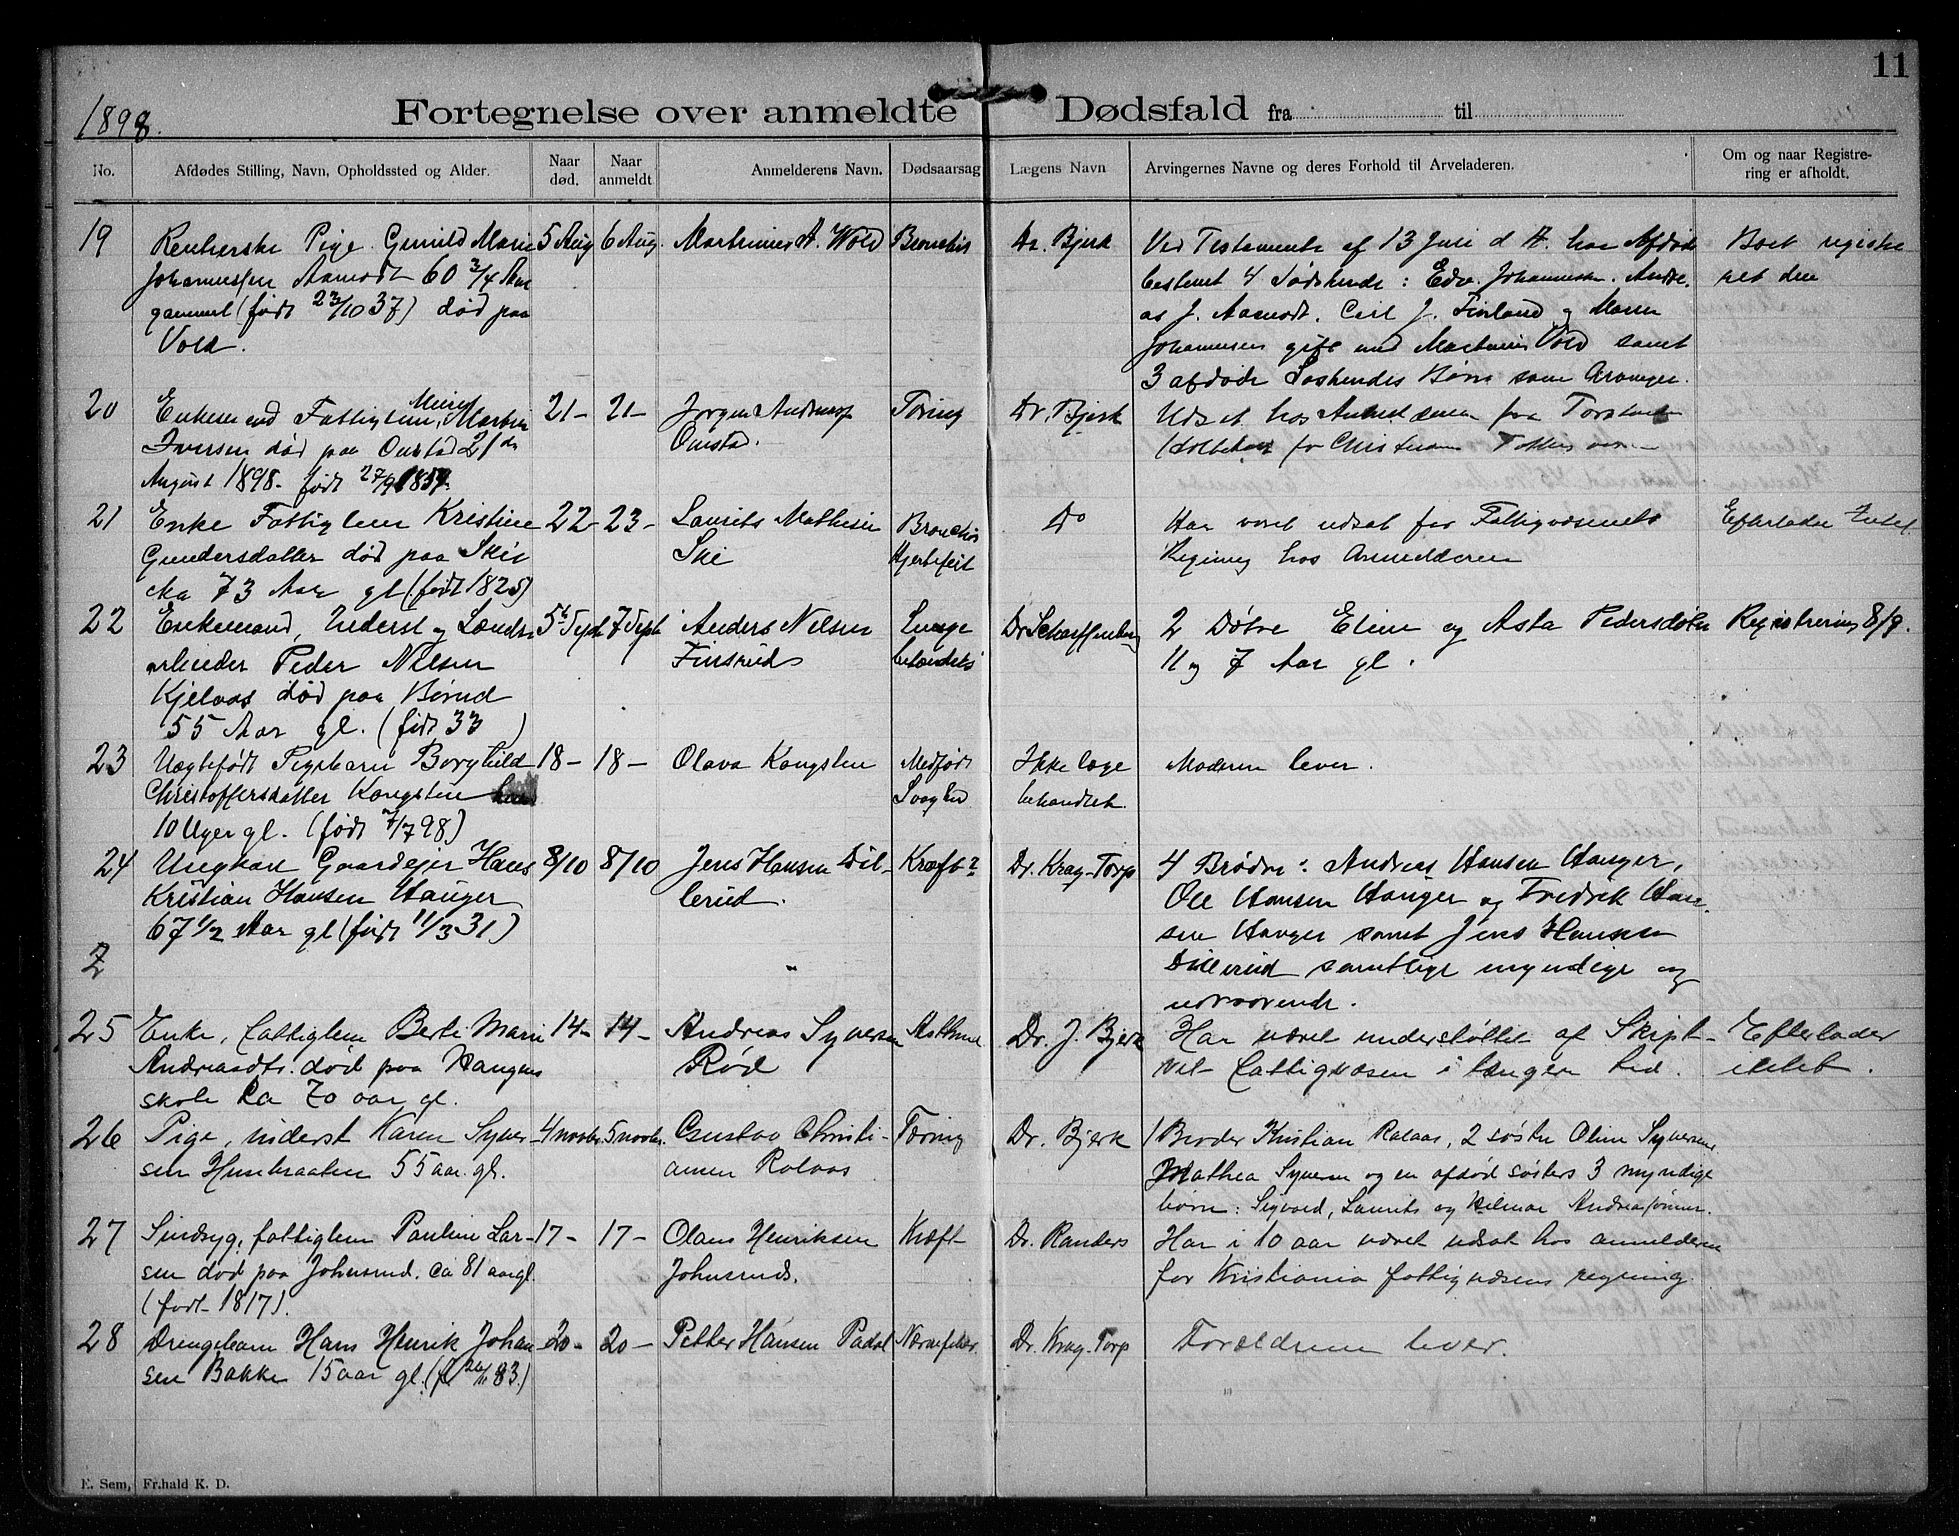 11
1898.
Fortegnelse over anmeldte Dødsfald fra til
No.
Afdødes Stilling, Navn, Opholdssted og Alder.
Naar død.
Naar anmeldt
Anmelderens Navn.
Dødsaarsag
Lægens Navn
Arvingernes Navne og deres Forhold til Arveladeren.
Om og naar Registre-
ring er afholdt.
19 Pige Gunild Marie 5 Aug 6 Aug. Martinius A. Wold Bronchis Dr. Bjerk Ved Testamente af 13 Juni d A. har Afdøde Boet registe
Johannessen Aamodt 60 3/4 Aar bestemt 4 Sødskende: Edv. Johannesen. Andre. ret den
gammel (født 23/10 37) død paa as J. Aamodt. Carl J. Finland og Maren
Vold. Johannesen gift med Martinius Vold samt
3 afdøde Søskendes Børn som Arvinger.
20 Enkemand Fattiglem, Martin 21- 21- Jørgen Andersen Tæring Dr. Bjerk Udsat hos fra
Iversen død paa Onstad 21de Onstad. for Christiania
August 1898. født 27/9 1837.
21 Enke Fattiglem Kristine 22- 23- Laurits Mathisen Bronchis Do Har været udsat for Fattigvæsenets Efterlader Intet.
Gundersdatter død paa Ski Ski Hjertefeil Regning hos Anmelderen
cka 73 Aar gl (født 1825)
22 Enkemand, Inderst og Lands 5te Sept 7 Sept Anders Nilsen Lunge Dr Scharffenberg 2 Døtre Eline og Asta Pedersdøtre Registrering 8/9.
arbeider Peder Nilsen Finsrud betændels 11 og 7 Aar gl.
Kjelaas død paa Børud
55 Aar gl. (født 33 )
23 Uægtefødt Pigebarn Borghild 18- 18- Olava Kongsten Medfødt Ikke læge Moderen lever.
Christoffersdatter Kongsten Svaghed behandlet.
10 Uger gl. (født 7/7 98)
24 Ungkarl Gaardejer Hans 8/10 8/10 Jens Hansen Dil- Kræft? Dr. Krag-Torp 4 Brødre: Andreas Hansen Hauger,
Kristian Hansen Hauger lerud. Ole Hansen Hauger og Fredrik Han-
67 1/2 Aar gl (født 11/3 31) sen Hauger samt Jens Hansen
2 Dillerud samtlige myndige og
nærværende.
25 Enke, fattiglem Berte Marie 14- 14- Andreas Syversen Asthma Dr. J. Bjerk Har været understøttet af Skipt- Efterlader
Andreasdtr. død paa Haugens Rød vet fattigvæsen i længere tid. intet.
skole ca 70 aar gl.
26 Pige, inderst Karen Syver- 4 novbr. 5 novbr. Gustav Christi- Tæring Dr. Bjerk 1 Broder Kristian Rolaas, 2 søstre Oline Syversen
sen Hunbraaten 55 aar gl. ansen Rolaas Mathea Syversen og en afdød søsters 3 myndige
børn: Sigvard, Laurits og Hilmar Andreassønner.
27 Sindsyg, fattiglem Pauline Lar- 17- 17- Olaus Henriksen Kræft Dr. Randers Har i 10 aar været udsat hos anmelderen
sen død paa Johnsrud. ca 81 aar gl. Johnsrud. for Kristiania fattigvæsens regning.
(født 1817).
28 Drengebarn Hans Henrik Johan 20- 20- Petter Hansen Padal Nervefeber. Dr. Krag-Torp Forældrene lever.
sen Bakke 15 aar gl. (f. 26/11 83.)
E. Sem, Fr.hald K. D.